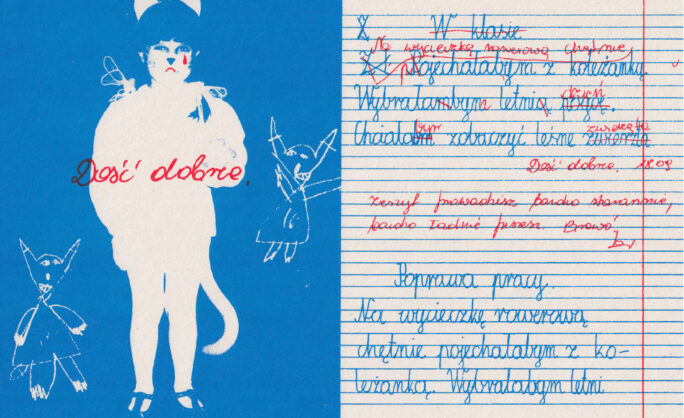 Dość dobrze.
Z W klasie
Na wycieczkę rowerową chętnie
pojechałabym z koleżanką.
dzień
Wybrałambym letnią porę.
bym zwierzęta
Chciałam zobaczyć leśne zwierzęta
Dość dobrze. 18.09
Zeszyt prowadzisz bardzo starannie,
bardzo ładnie piszesz. Brawo!
Poprawa pracy.
Na wycieczkę rowerową
chętnie pojechałabym z ko-
leżanką. Wybrałabym letni